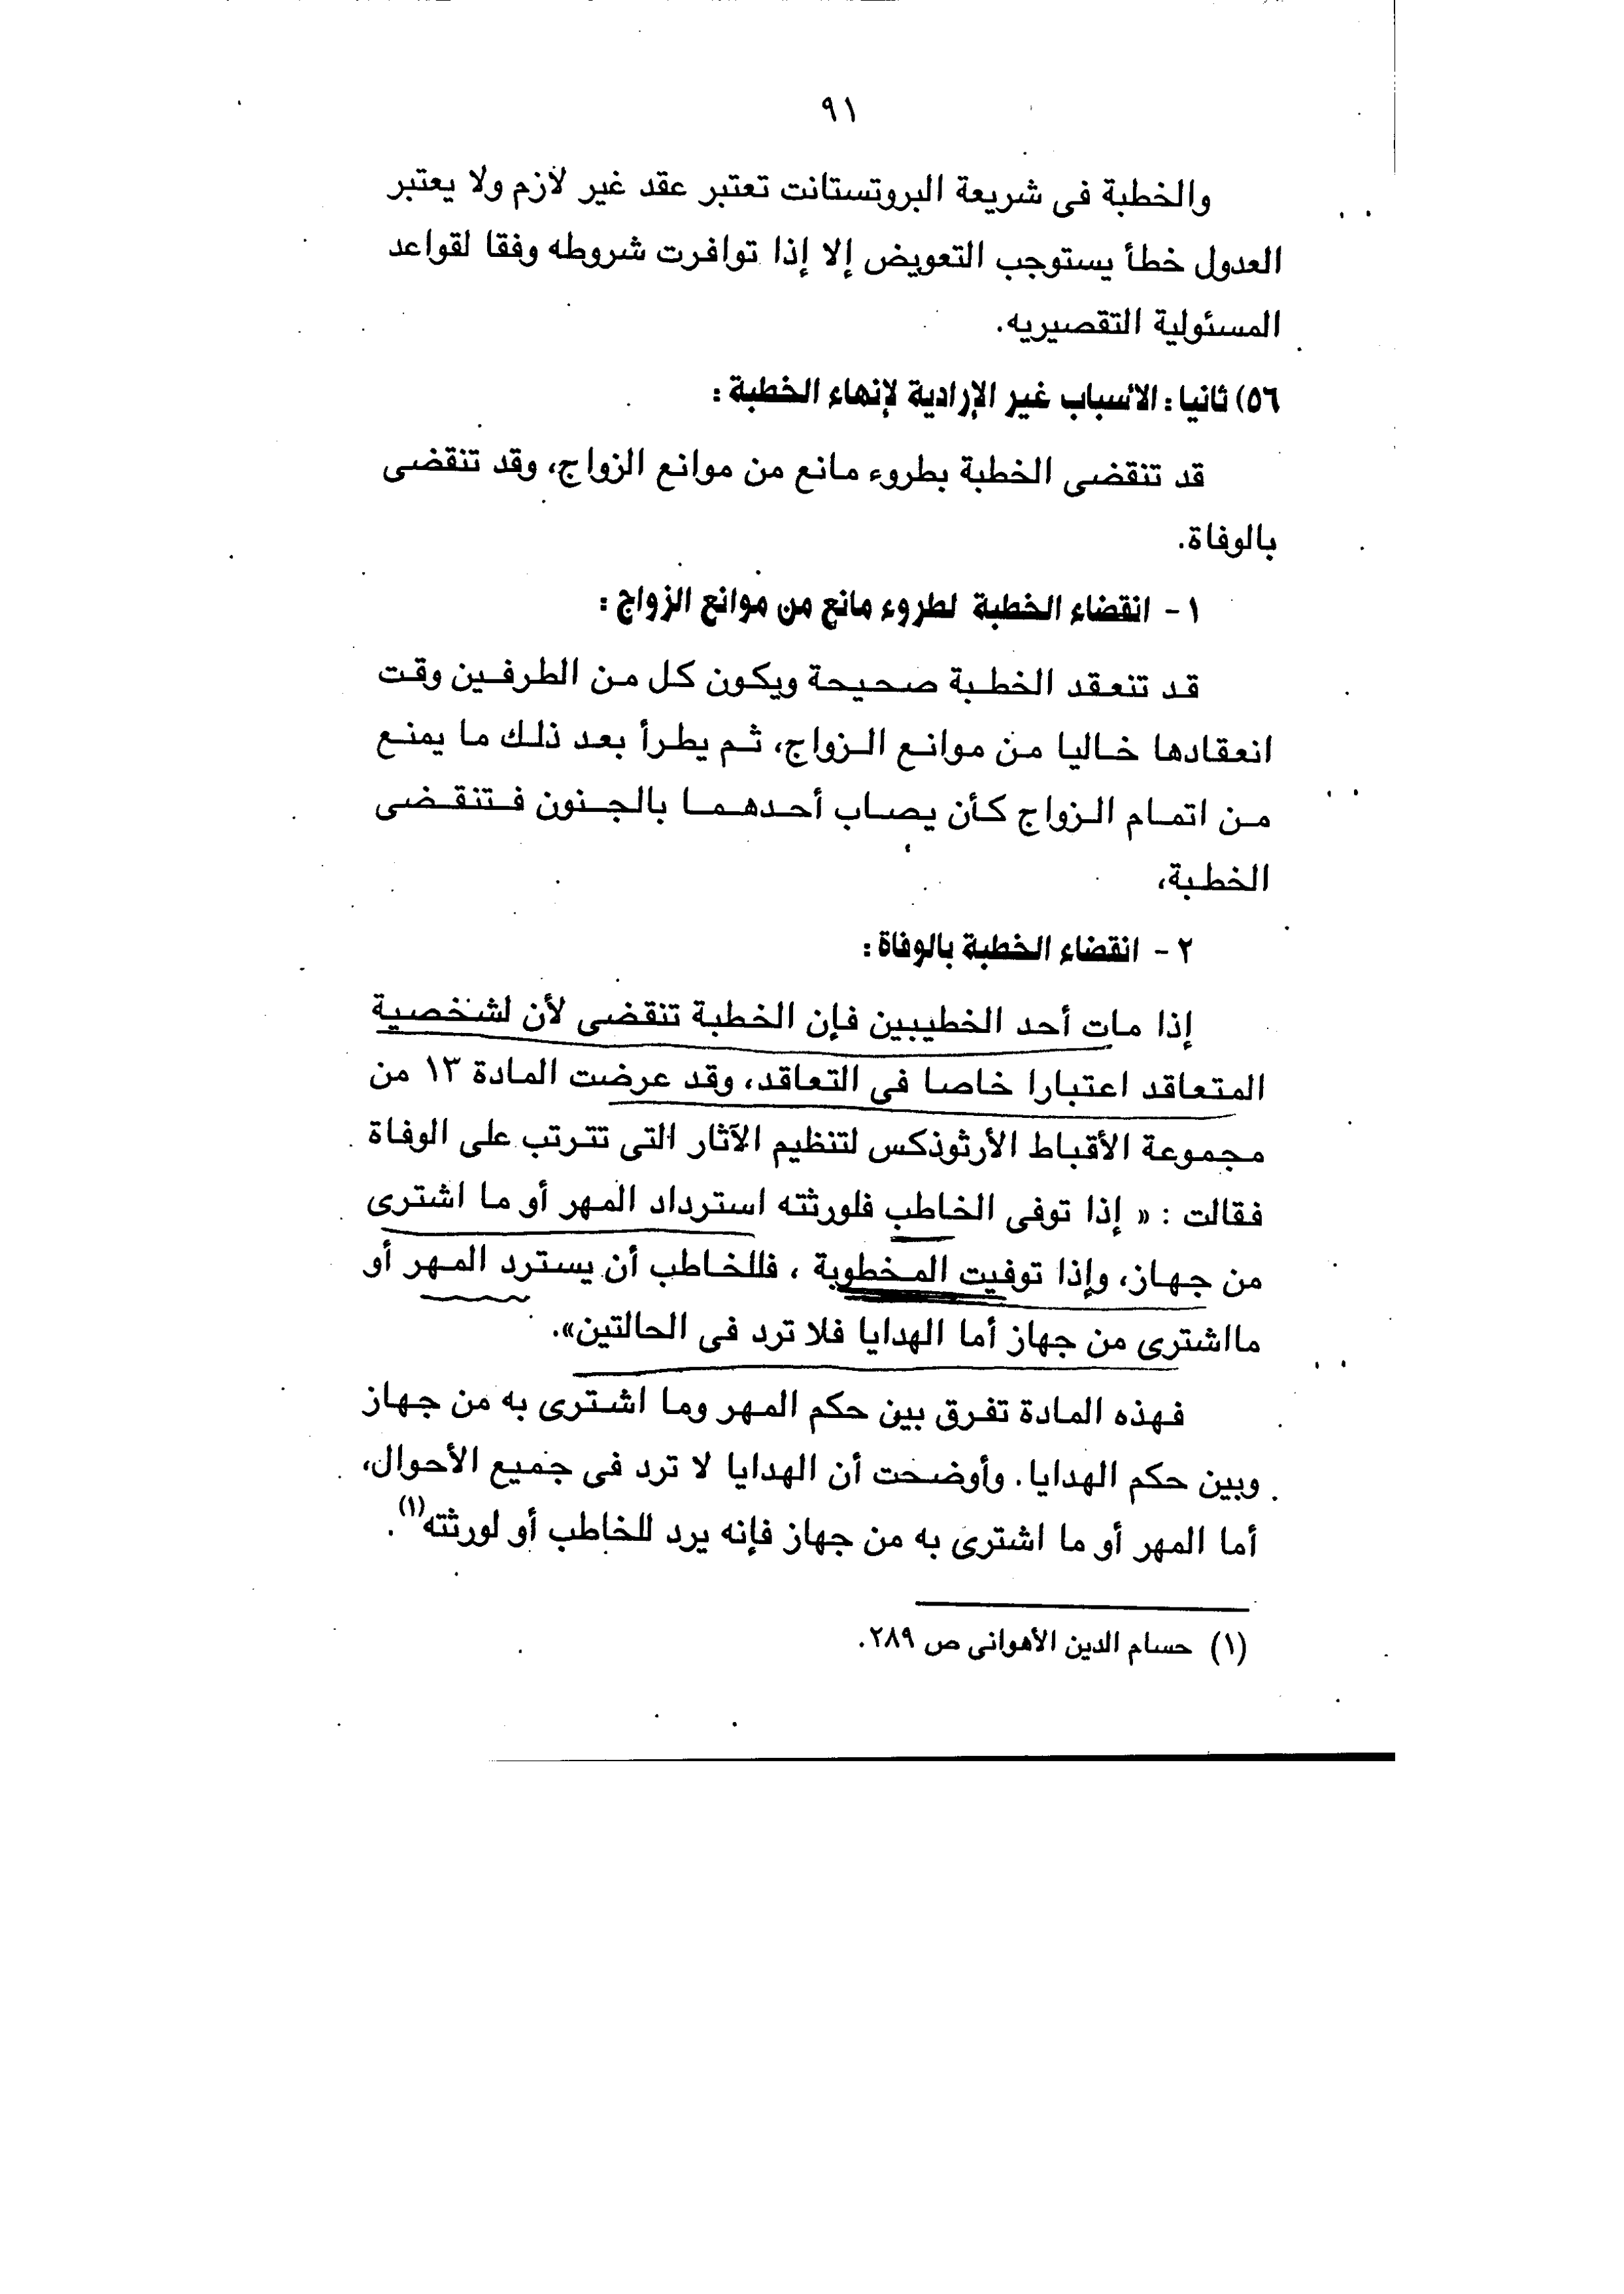 ٩١
والخطبة فى شريعة البروتستانت تعتبر عقد غير لازم ولا يعتبر
العدول خطأ يستوجب التعويض إلا إذا توافرت شروطه وفقا لقواعد
المسئولية التقصيريه.
٥٦) ثانيا : الأسباب غير الإرادية لإنهاء الخطبة :
قد تنقضى الخطبة بطروء مانع من موانع الزواج، وقد تنقضى
بالوفاة.
١ - انقضاء الخطبة لطروء مانع من موانع الزواج :
قد تنعقد الخطبة صحيحة ويكون كل من الطرفين وقت
انعقادها خاليا من موانع الزواج، ثم يطرأ بعد ذلك ما يمنع
من اتمام الزواج كأن يصاب أحدهما بالجنون فتنقضى
الخطبة،
٢ - انقضاء الخطبة بالوفاة :
إذا مات أحد الخطيبين فإن الخطبة تنقضى لأن لشخصية
المتعاقد اعتبارا خاصا فى التعاقد، وقد عرضت المادة ١٣ من
مجموعة الأقباط الأرثوذكس لتنظيم الآثار التى تترتب على الوفاة
فقالت : « إذا توفى الخاطب فلورثته استرداد المهر أو ما اشترى
من جهاز، وإذا توفيت المخطوبة ، فللخاطب أن يسترد المهر أو
مااشترى من جهاز أما الهدايا فلا ترد فى الحالتين».
فهذه المادة تفرق بين حكم المهر وما اشترى به من جهاز
وبين حكم الهدايا. وأوضحت أن الهدايا لا ترد فى جميع الأحوال،
أما المهر أو ما اشترى به من جهاز فإنه يرد للخاطب أو لورثته(١).
(١) حسام الدين الأهوانى ص ٢٨٩.